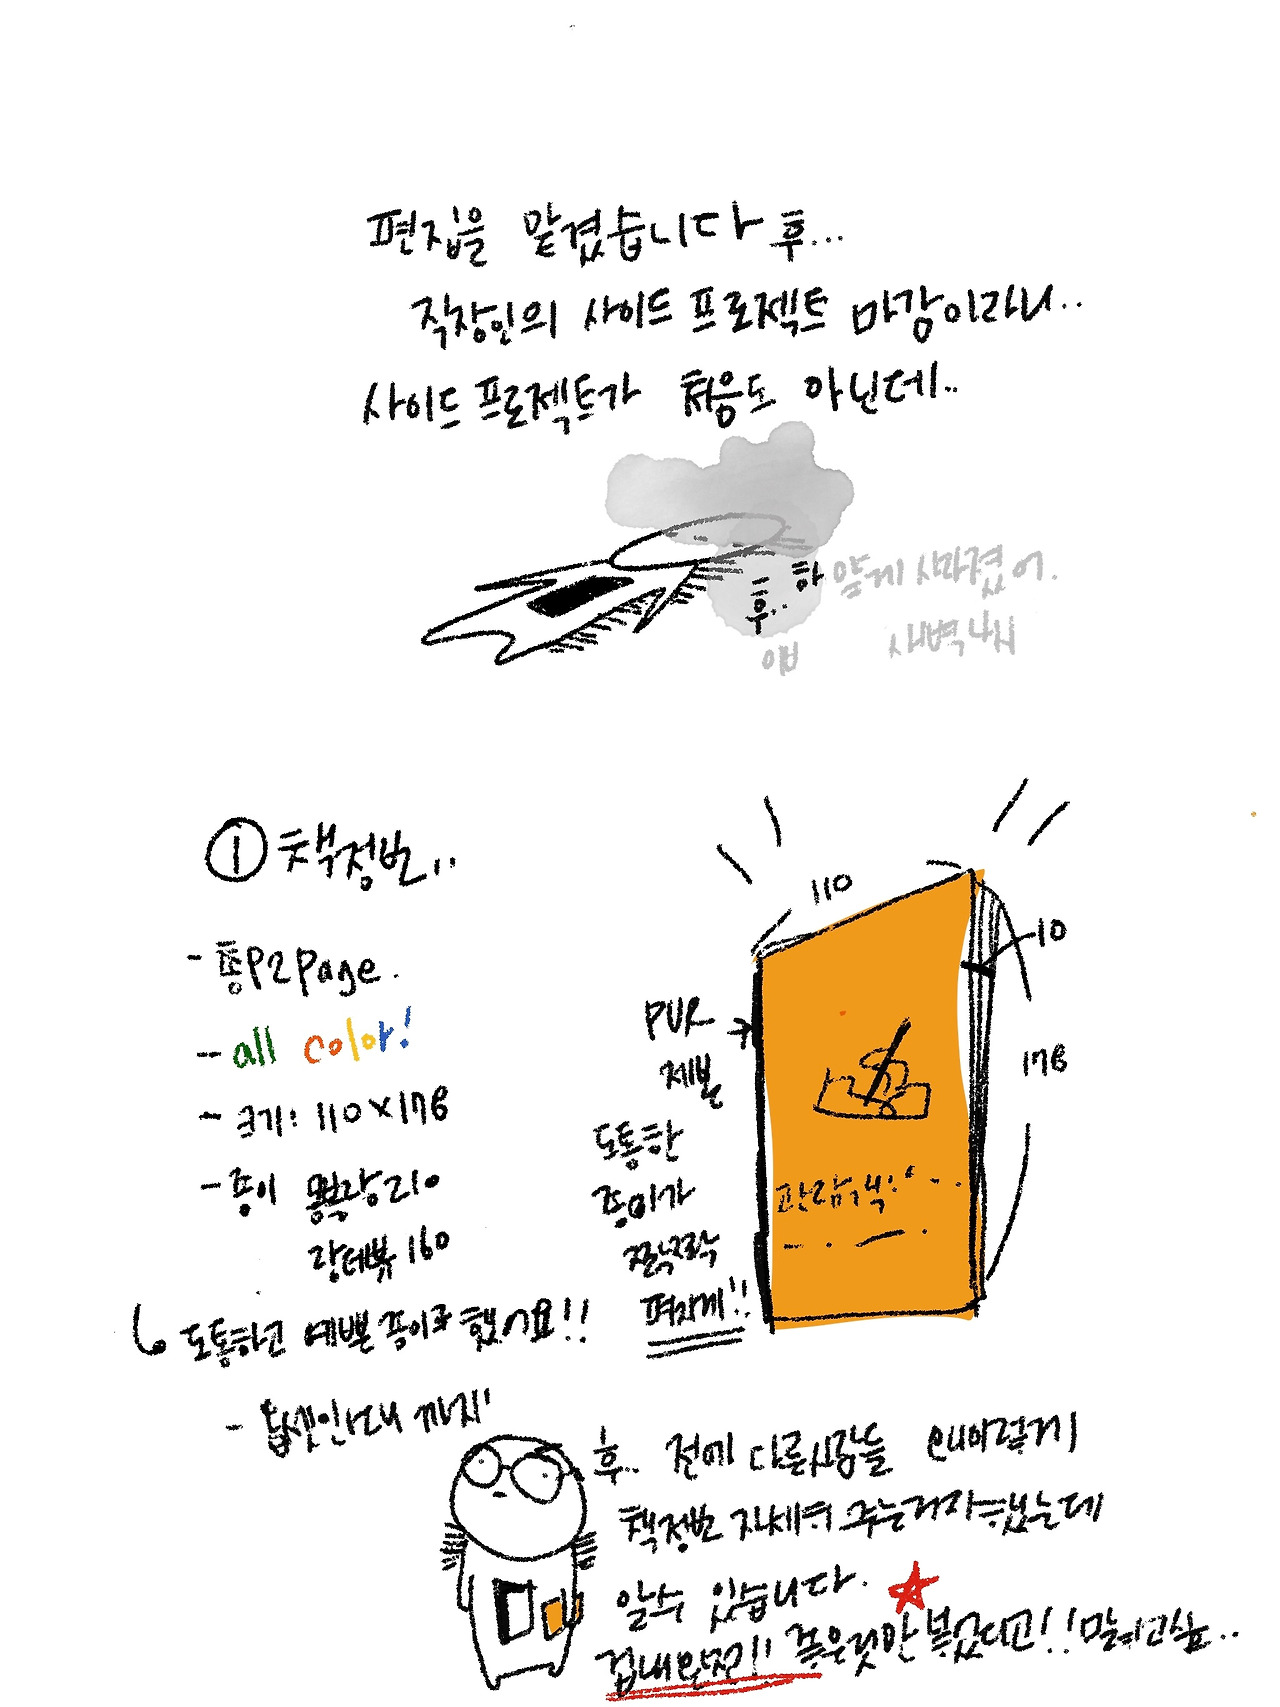 편집을 맡겼습니다 후...
직장인의 사이드 프로젝트 마감이라니..
사이드 프로젝트가 처음도 아닌데..
후.. 하
새벽 4시
① 책정보..
110
10
178
- 총 92 page.
- all color!
- 크기: 110×178
- 종이 몽블랑 210
랑데뷰 160
↳ 도톰하고 예쁜 종이로 했어요!!
PUR
제본
도톰한
종이가
펴지게!!
관람객:
후.. 전에 다른사람들 왜이렇게
책정보 자세히 주는거지 했는데
알수 있습니다.
겁내 완전!! 좋은것만 넣었다고!! 말하고싶..